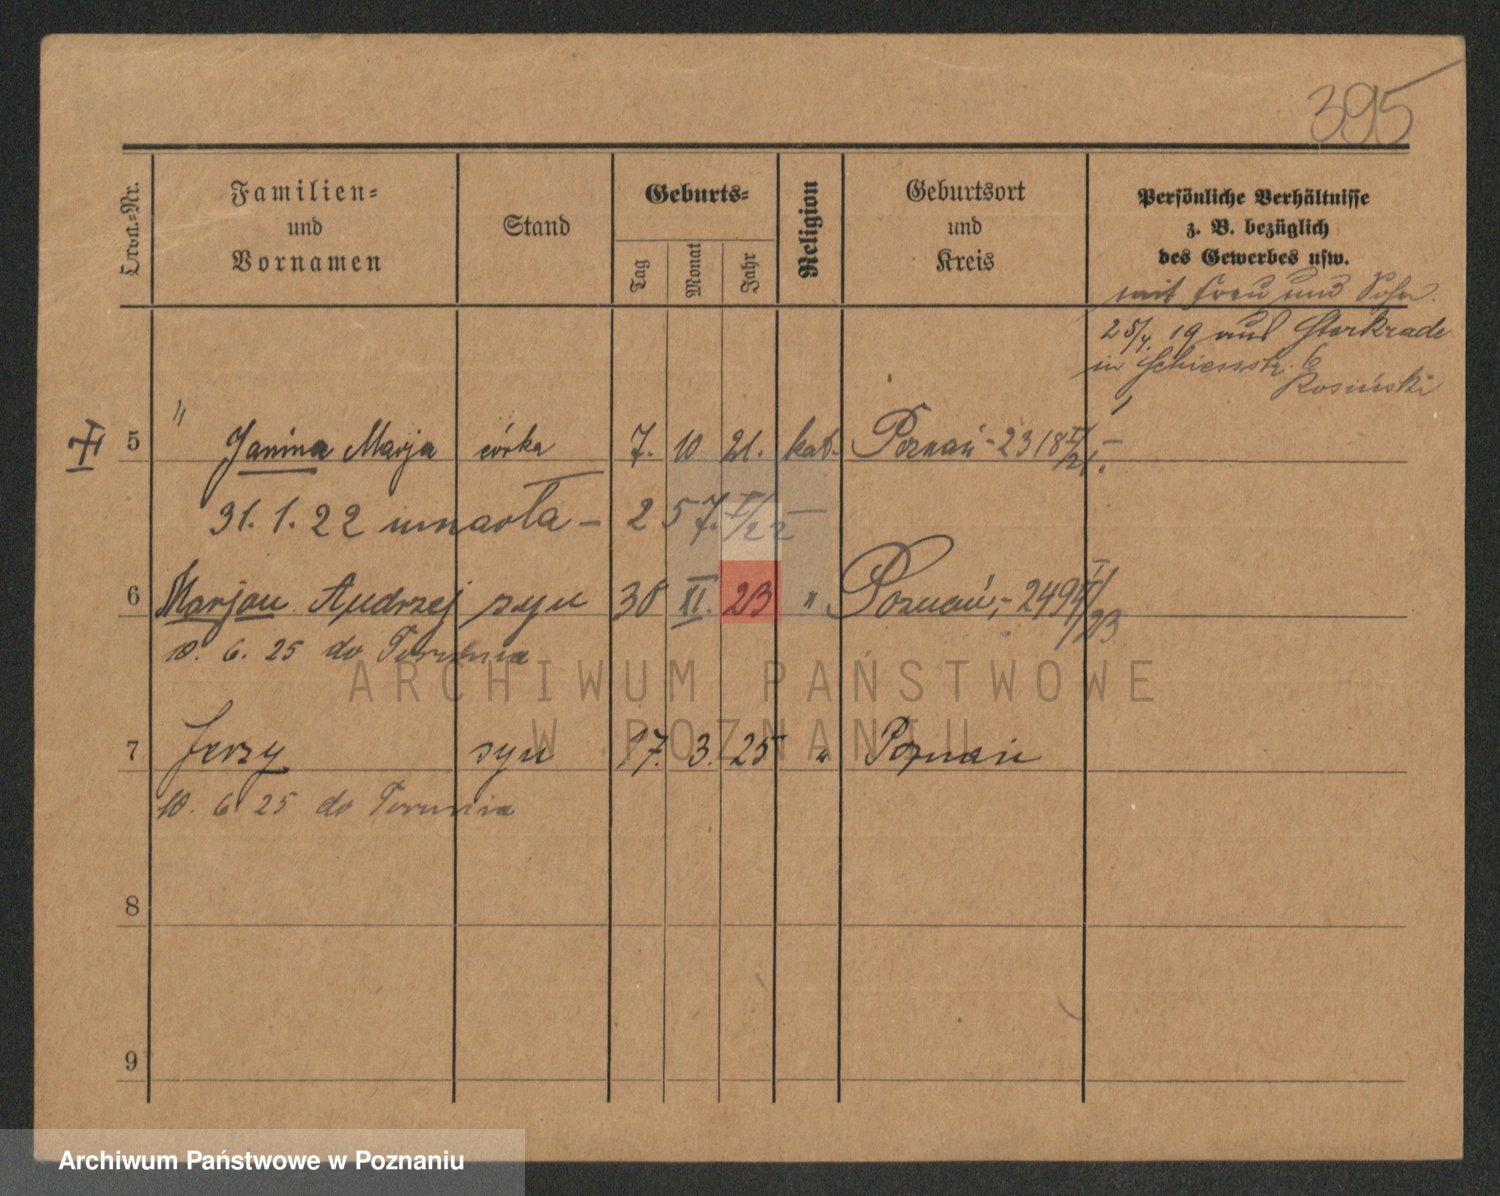 395
Ordn.-Nr.
Familien-
und
Vornamen
Stand
Geburts-
Tag
Monat
Jahr
Religion
Geburtsort
und
Kreis
Persönliche Verhältnisse
z. B. bezüglich
des Gewerbes usw.
mit Frau und Sohn.
25/4. 19 aus Sterkrade
in Schiesstr. 6
Rosiński
"
5 Janina Marja córka 7. 10 21. kat. Poznań - 2318
31. 1. 22 umarła - 257. I/22 -
6 Marjan Andrzej syn 30 XI. 23 " Poznań, - 249
10. 6. 25 do Torunia
7 Jerzy syn 17. 3. 25 " Poznań
10. 6 25 do Torunia
8
9
ARCHIWUM PAŃSTWOWE
W POZNANIU
Archiwum Państwowe w Poznaniu